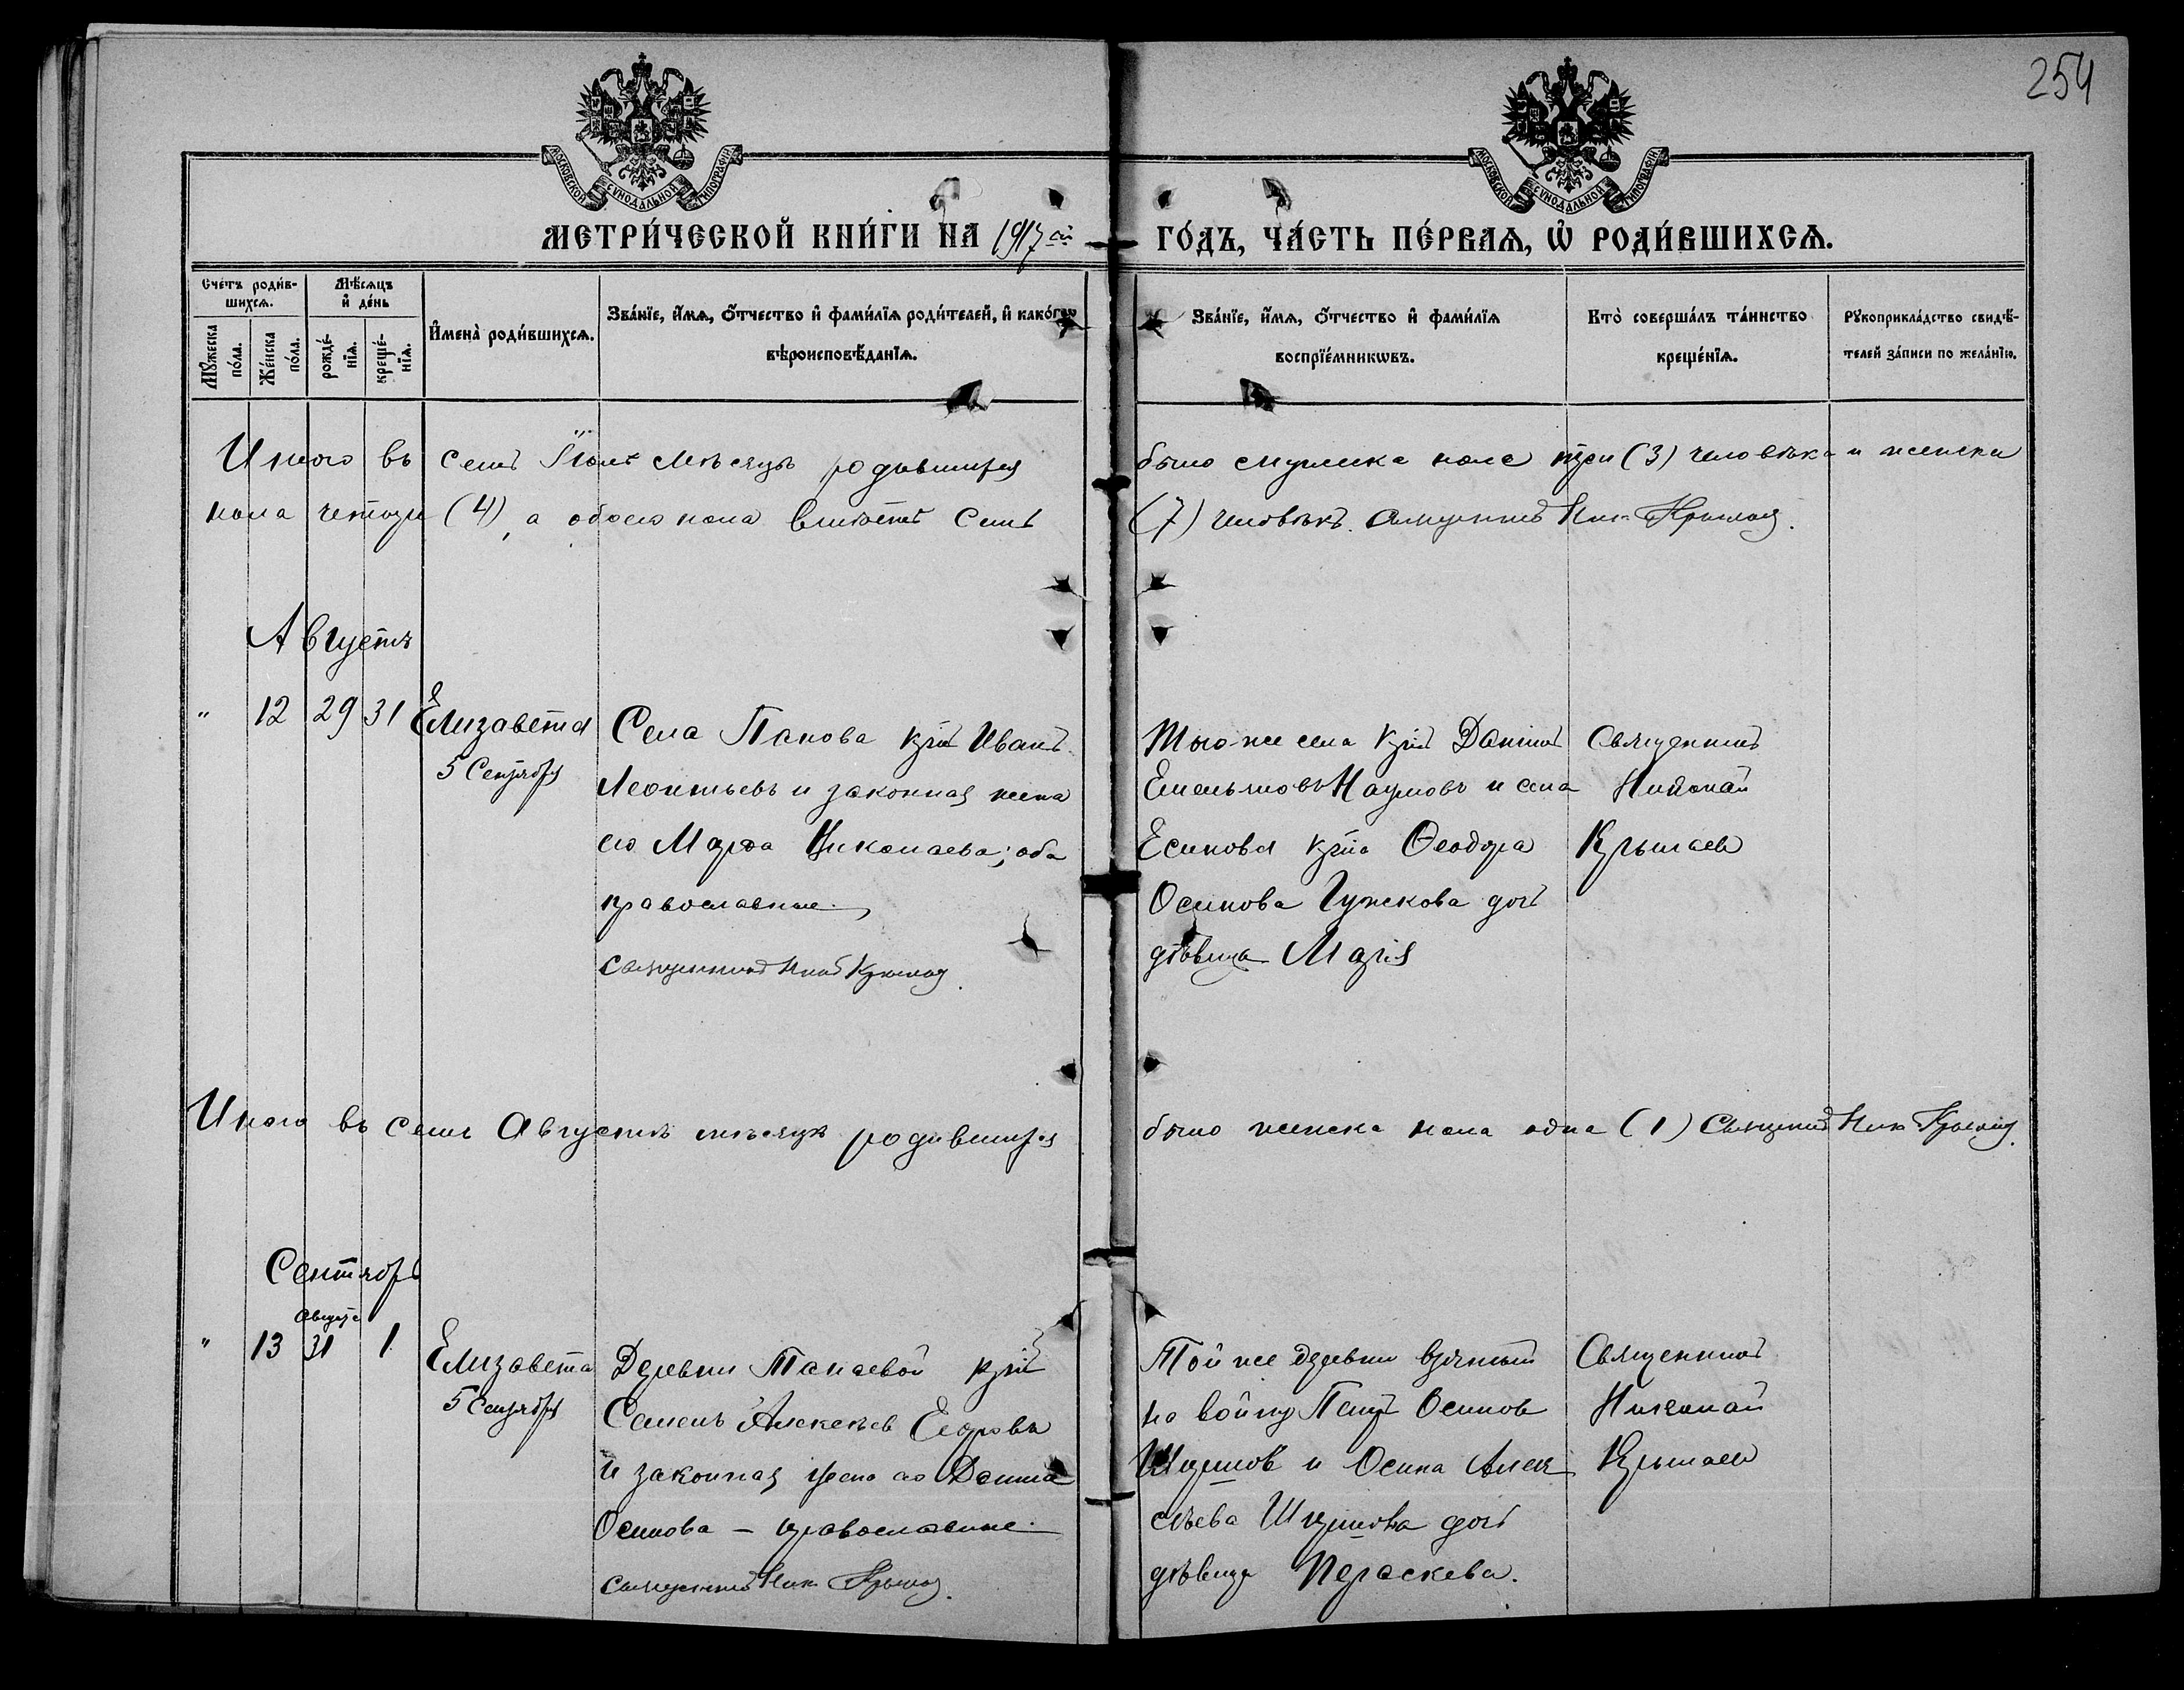 254
МОСКОВСКОЙ СѴНОДАЛЬНОЙ ТИПОГРАФІИ
МОСКОВСКОЙ СѴНОДАЛЬНОЙ ТИПОГРАФІИ
МЕТРИ́ЧЕСКОЙ КНИ́ГИ НА 1917 ый ГО́ДЪ, ЧА́СТЬ ПЕ́РВАѦ, Ѡ҆ РОДИ́ВШИХСѦ.
Сче́тъ роди́вшихсѧ.
Мѣ́сѧцъ и҆ де́нь
Мꙋ́жеска по́ла.
Же́нска по́ла.
рожде́нїѧ.
креще́нїѧ.
И҆мена̀ роди́вшихсѧ.
Зва́нїе, и҆́мѧ, ѻ҆́тчество и҆ фами́лїѧ роди́телей, и҆ како́гѡ
вѣроисповѣ́данїѧ.
Зва́нїе, и҆́мѧ, ѻ҆́тчество и҆ фами́лїѧ
воспрїе́мникѡвъ.
Кто̀ соверша́лъ та́инство
креще́нїѧ.
Рꙋкоприкла́дство свидѣ́телей за́писи по жела́нїю.
Итого въ семъ Іюлѣ мѣсяцѣ родившихся было мужска пола три (3) человѣка и женска
пола четыре (4), а обоего пола вмѣстѣ семь (7) человѣкъ. Священникъ Ник. Крылов
Августъ
" 12 29 31 Елизавета
5 Сентября
Села Панова кр‑нъ Иванъ
Леонтьевъ и законная жена
его Марѳа Николаева; оба
православные.
Священникъ Ник. Крылов.
Того же села кр‑нъ Даніилъ
Емельяновъ Наумовъ и села
Есипова кр‑на Ѳеодора
Осипова Гужкова дочь
дѣвица Марія
Священникъ
Николай
Крылаев
Итого въ семъ Августѣ мѣсяцѣ родившихся было женска пола одна (1) Священникъ Ник. Крылов.
Сентябрь
Августа
" 13 31 1 Елизавета
5 Сентября
Деревни Танаевой кр‑нъ
Семенъ Алексѣев Егоровъ
и законная жена его
Осипова – православные.
Священникъ Ник. Крылов.
Той же деревни взятый
на войну Петръ Осипов
и Осипа Алек
сѣева дочь
дѣвица Параскева.
Священникъ
Николай
Крылаев